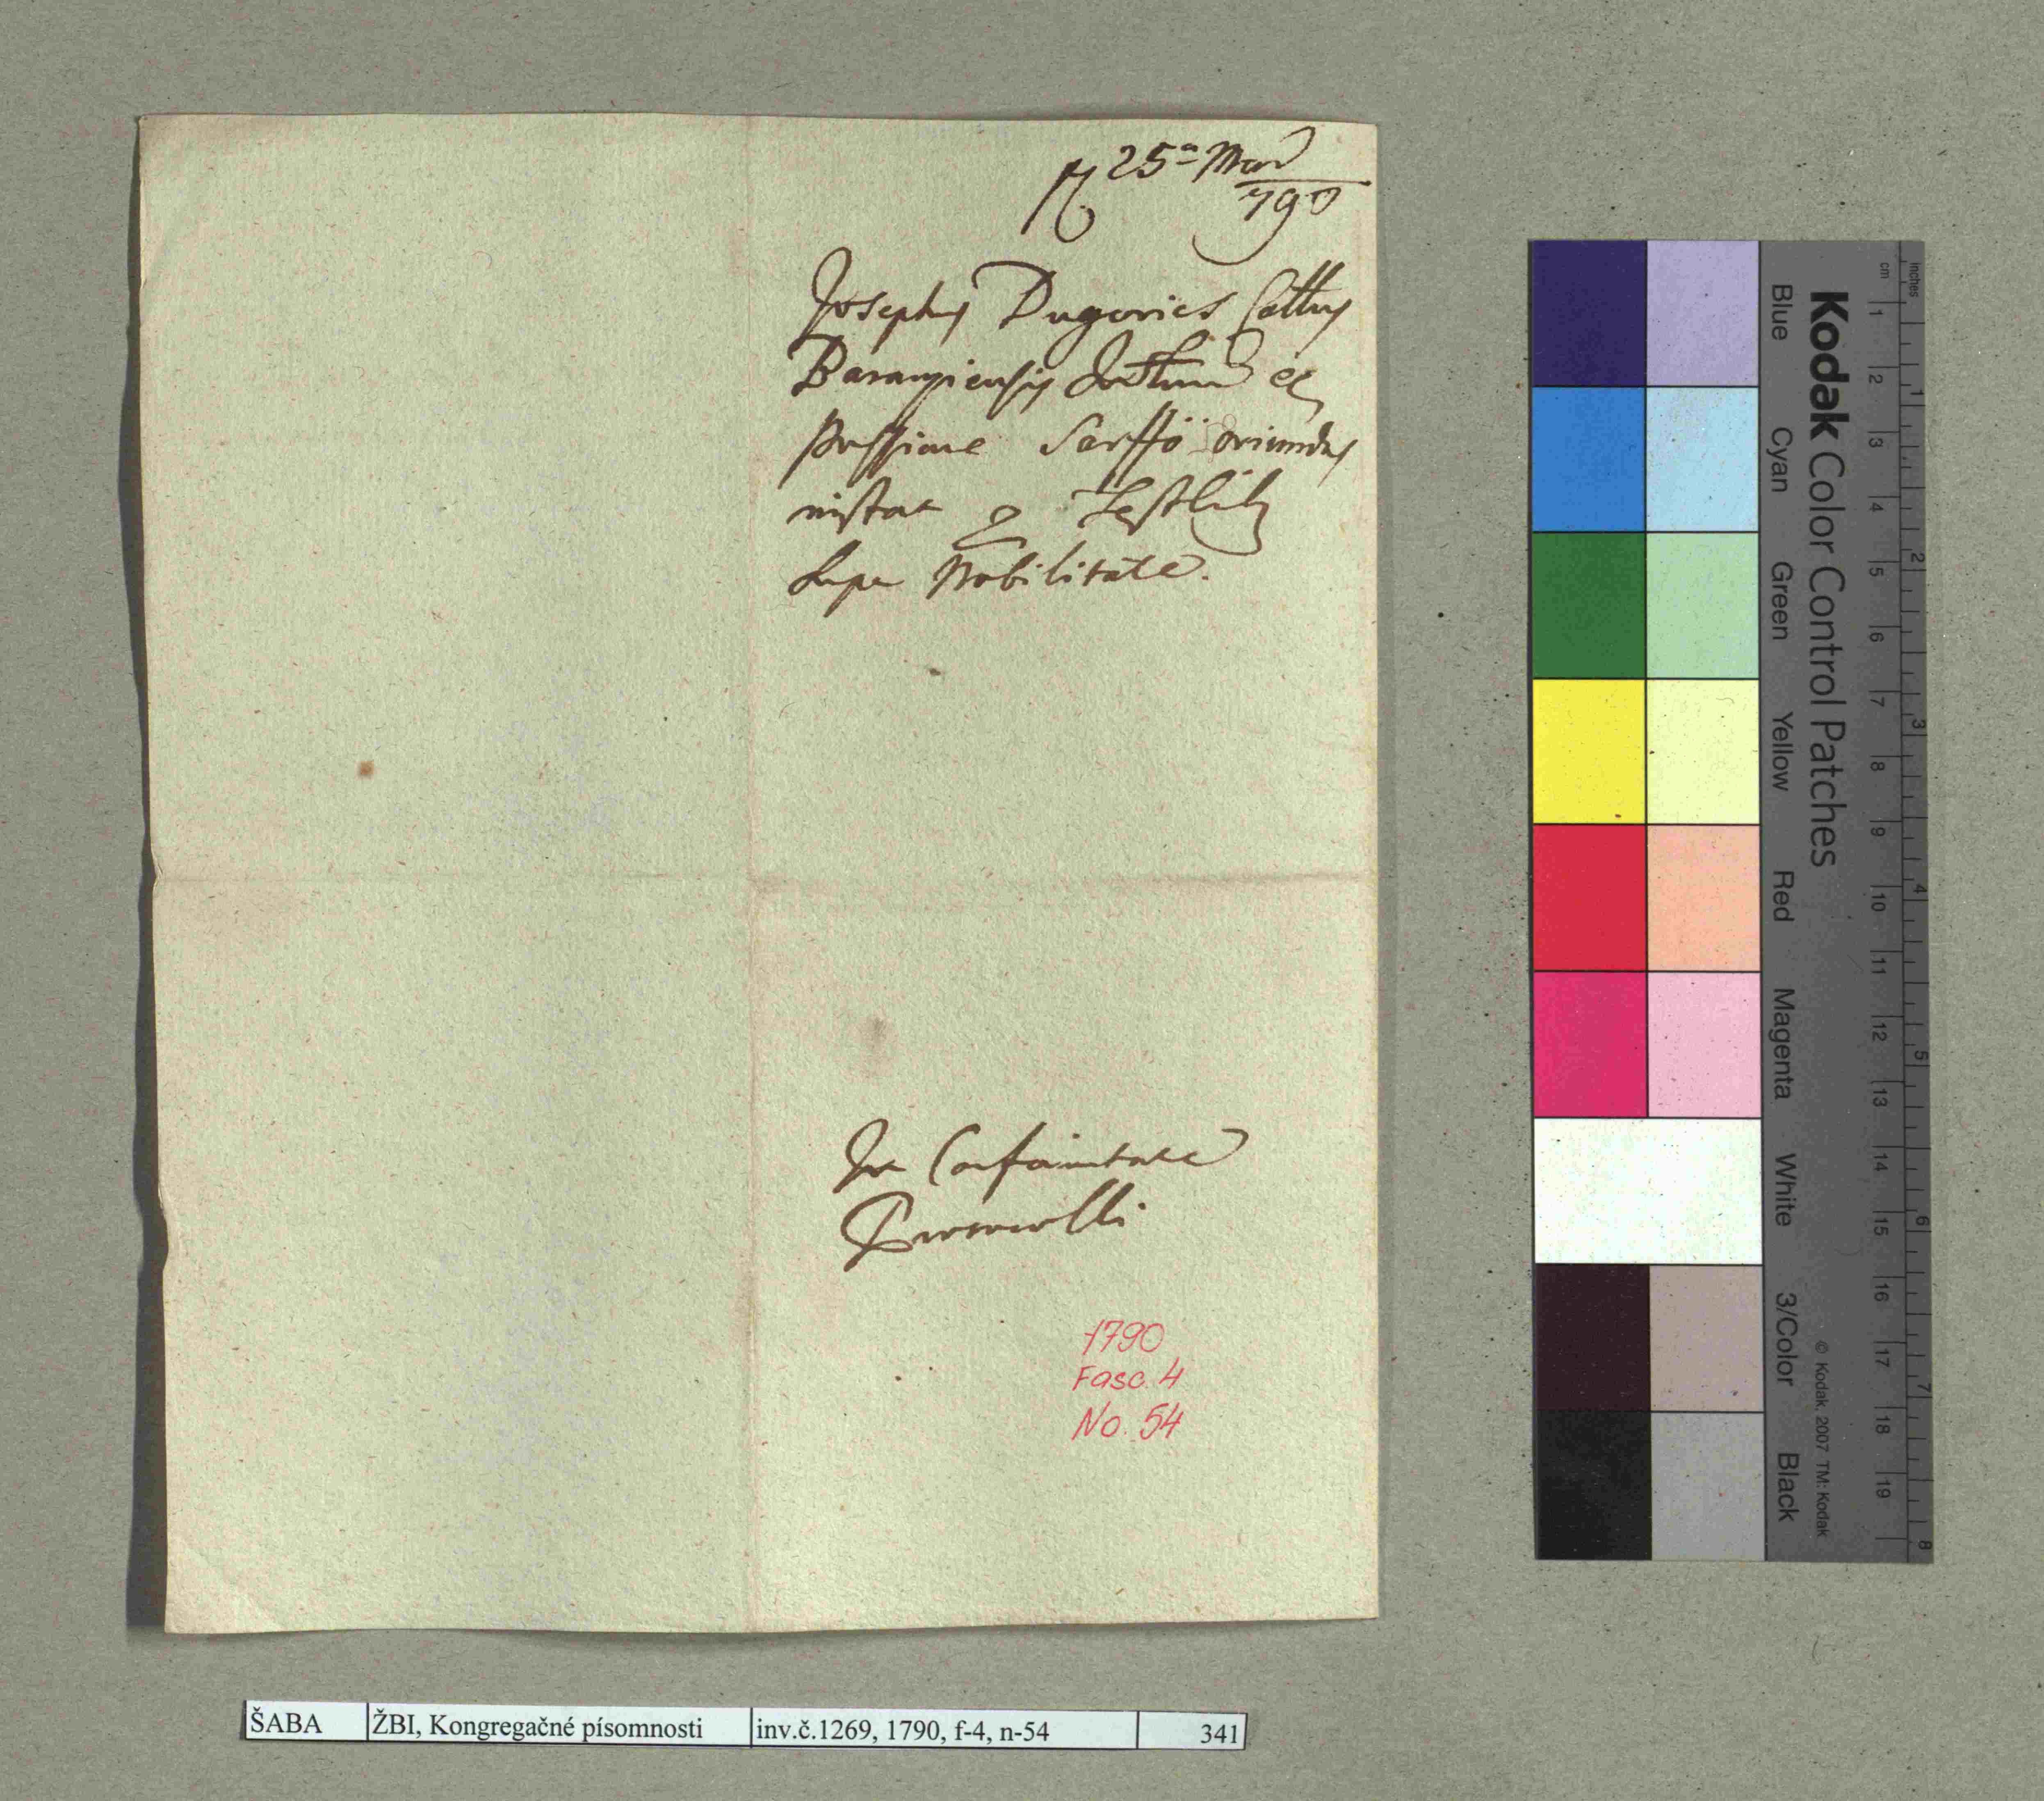 25ª Mar
790
Josephus Dugovics Cottus
Baranyiensis Incolam ex
Possione Sarffő oriundus
instat p Testlibus
Super Nobilitate.
In Conformitate
1790
Fasc. 4
No. 54
ŠABA ŽBI, Kongregačné písomnosti inv.č.1269, 1790, f-4, n-54 341
Kodak Color Control Patches
© Kodak, 2007 TM: Kodak
Blue Cyan Green Yellow Red Magenta White 3/Color Black
cm 1 2 3 4 5 6 7 8 9 10 11 12 13 14 15 16 17 18 19
inches 1 2 3 4 5 6 7 8